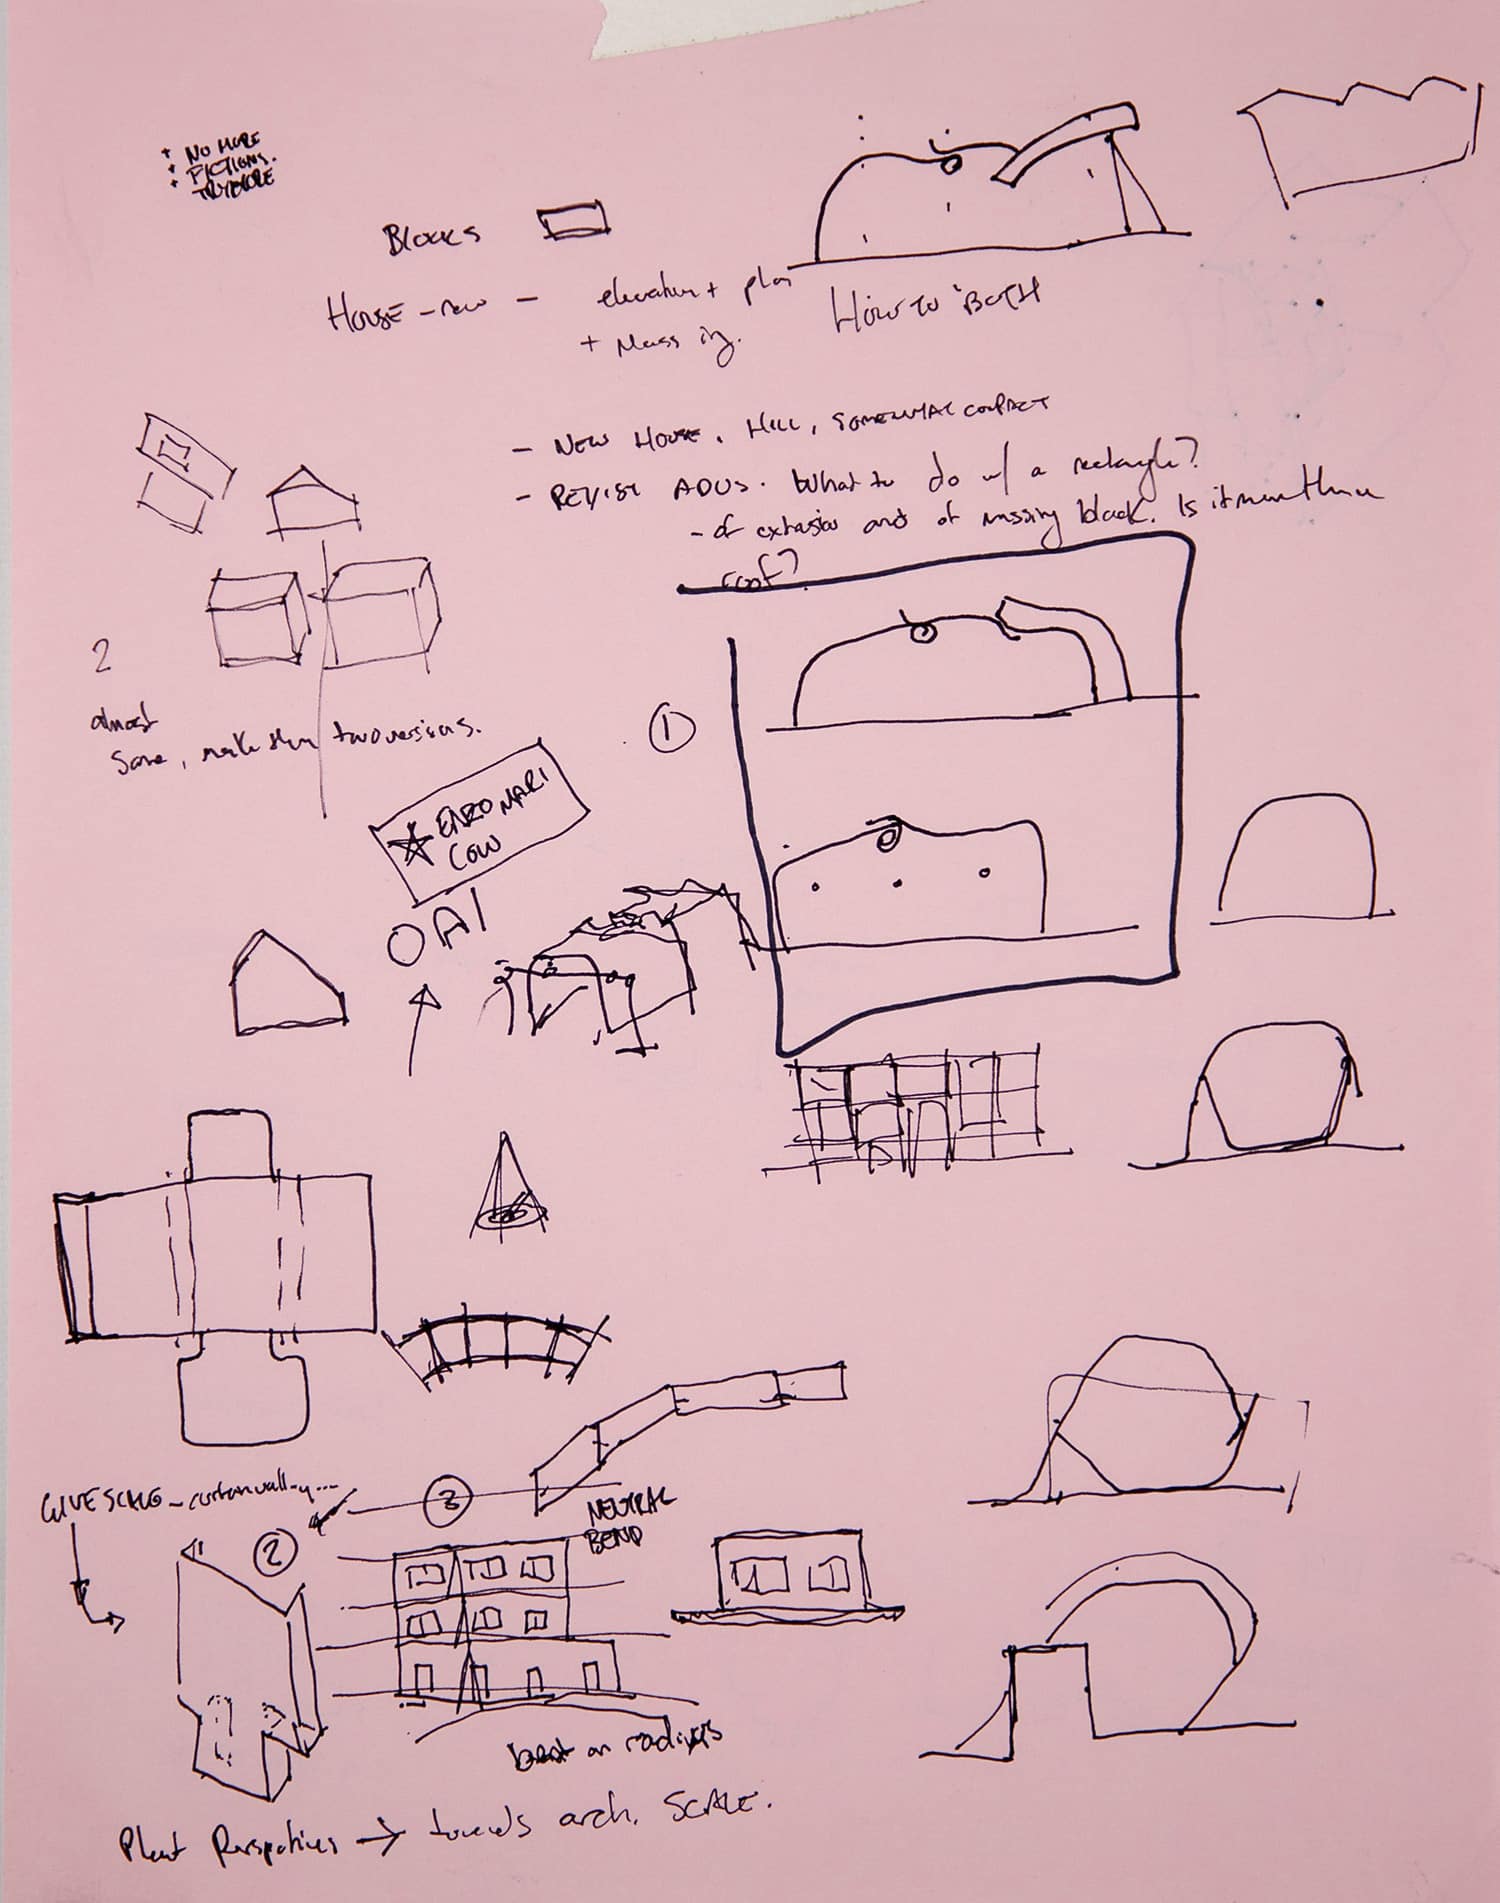 + NO MORE
+ FICTIONS.
BLOCKS
HOUSE - new - elevation + plan
+ Massing.
HOW TO 'BOTH
- NEW HOUSE, HILL, SOMEWHAT COMPACT
- REVISE ADUS. What to do w/ a rectangle?
- of extrusion and of massing block. Is it more than a
roof?
2
almost
Same, make them two versions.
1
ENZO MARI
COW
OAI
GIVE SCALE - curtain wall-y...
3
2
NEUTRAL
BEND
bent on radiuses
Plant Perspectives → towards arch. SCALE.